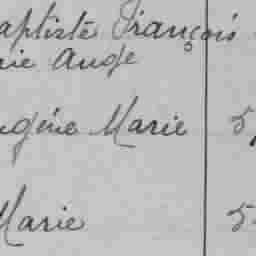 aptiste François
rie Ange
ugénie Marie 5
Marie 5